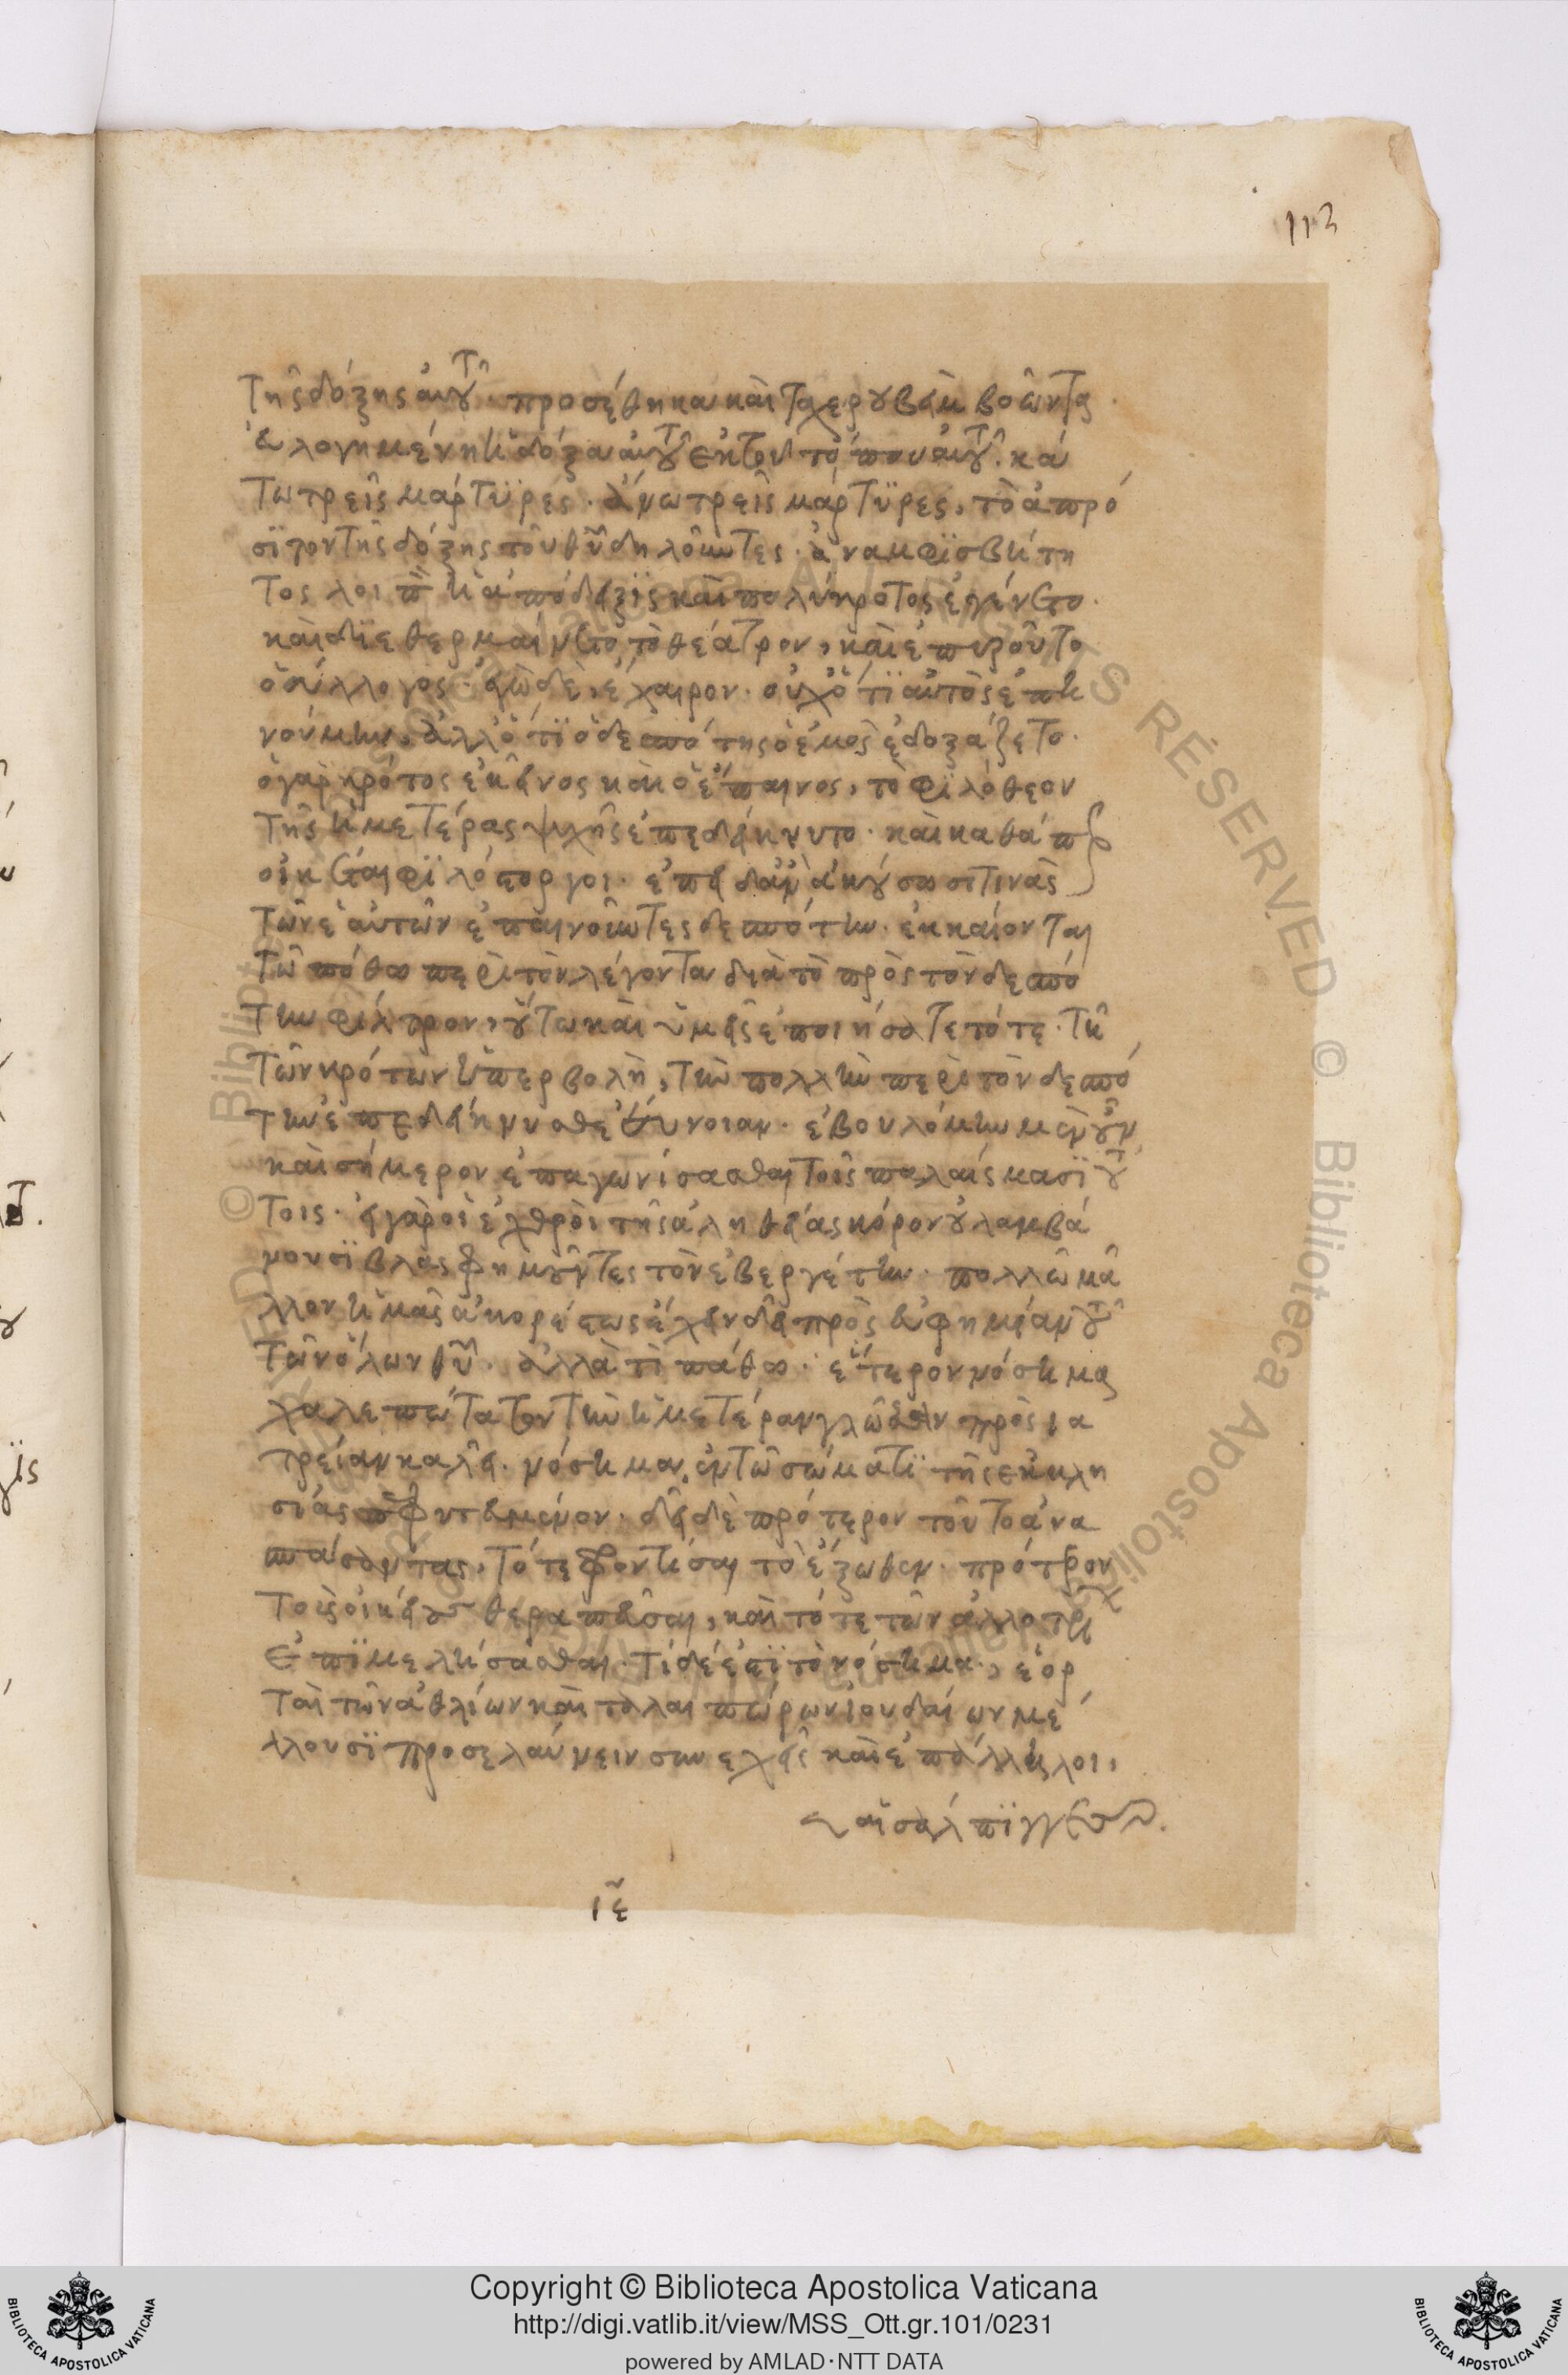 113
τῆς δόξης αὐτοῦ. προσέθηκα καὶ τὰ χερουβὶμ βοῶντα.
εὐλογημένη ἡ δόξα αὐτοῦ ἐκ τοῦ τόπου αὐτοῦ. κά
τω τρεῖς μάρτϋρες. ἄνω τρεῖς μάρτϋρες, τὸ ἀπρό
σϊτον τῆς δόξης τοῦ θυ δηλοῦντες. ἀναμφϊσβήτη
τος λοιπ ἡ ἀπόδειξϊς καὶ πολύκροτος ἐγένετο.
καὶ διεθερμαίνετο τὸ θέατρον, καὶ ἐπυροῦτο
ὁ σύλλογος. ἐγὼ δὲ, ἔχαιρον. οὐχ ὅτϊ αὐτὸς ἐπη
νούμην, ἀλλ ὅτϊ ὁ δεσπότης ὁ ἐμὸς ἐδοξάζετο.
ὁ γὰρ κρότος ἐκεῖνος καὶ ὁ ἔπαινος, τὸ φϊλόθεον
τῆς ἡμετέρας ψυχῆς ἐπεδείκνυτο. καὶ καθάπερ
οἰκέται φϊλόστοργοι. ἐπειδὰν ἀκούσωσί τινας
τῶν ἑαυτῶν ἐπαινοῦντες δεσπότην. ἐκκαίονται
τῶ πόθω περὶ τὸν λέγοντα διὰ τὸ πρὸς τὸν δεσπό
την φίλτρον, οὕτω καὶ ὑμεῖς ἐποιήσατε τότε. τῆ
τῶν κρότων ὑπερβολῆ, τὴν πολλὴν περὶ τὸν δεσπό
την ἐπεδείκνυσθε εὔνοιαν. ἐβουλόμην μὲν οὖν
καὶ σήμερον ἐπαγωνίσασθαι τοῖς παλαίσμασϊ τού
τοις. εἰ γὰρ οἱ ἐχθροὶ τῆς ἀληθείας κόρον οὐ λαμβά
νουσϊ βλασφημοῦντες τὸν εὐεργέτην. πολλῶ μᾶ
λλον ἡμᾶς ἀκορέστως ἔχειν δεῖ πρὸς εὐφημίαν τοῦ
τῶν ὅλων θυ. ἀλλὰ τί πάθω. ἕτερον νόσημα
χαλεπώτατον τὴν ἡμετέραν γλῶσσαν πρὸς ια
τρείαν καλεῖ. νόσημα ἐν τῶ σώματϊ τῆς ἐκκλη
σίας πεφυτευμένον. δεῖ δὲ πρότερον τοῦτο ἀνα
σπάσαντας, τότε φροντίσαι τὸ ἔξωθεν. πρότερον
τοὺς οἰκείους θεραπεῦσαι, καὶ τότε τῶν ἀλλοτρίων
ἐπϊμελήσασθαι. τί δέ ἐστϊ τὸ νόσημα, ἑορ
ταὶ τῶν ἀθλίων καὶ ταλαιπώρων ἰουδαίων μέ
λλουσϊ προσελαύνειν συνεχεῖς καὶ ἐπάλληλοι,
αἱ σάλπϊγγες
ιε
Copyright © Biblioteca Apostolica Vaticana
http://digi.vatlib.it/view/MSS_Ott.gr.101/0231
powered by AMLAD·NTT DATA